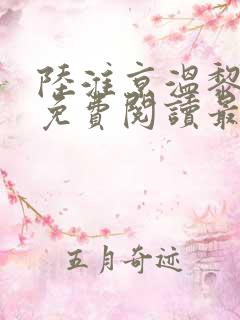 陸淮京溫黎
免費閱讀最
五月奇迹